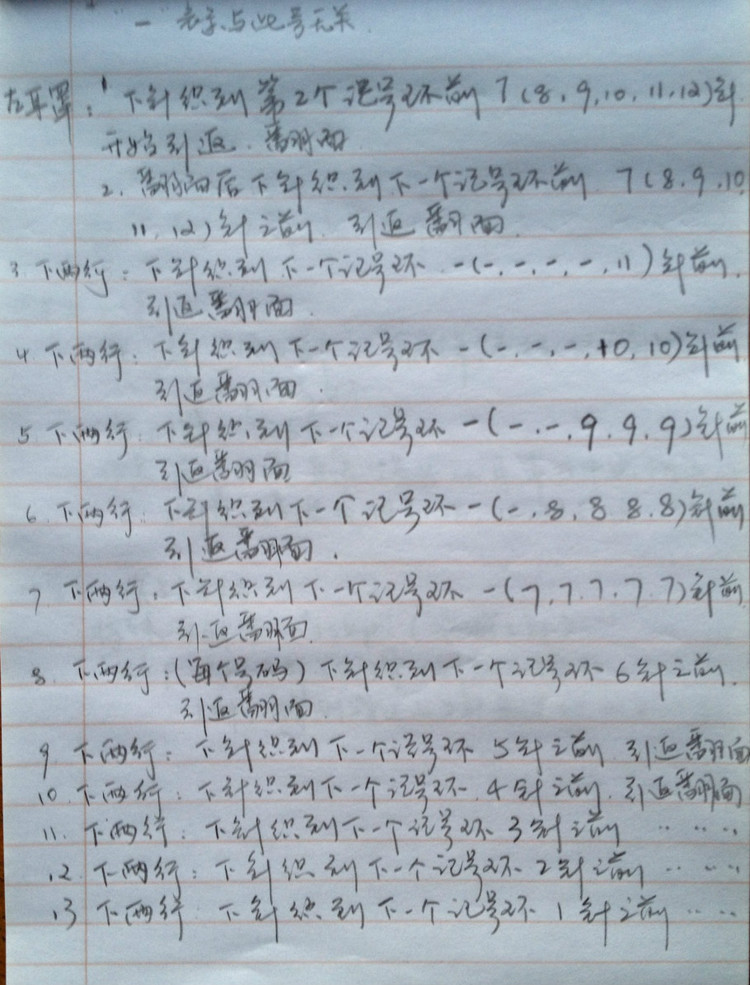 "一" 表示与此号无关.
左耳罩: 1 下针织到第2个记号环前 7(8.9.10.11.12)针
开始引返. 翻面.
2. 翻面后下针织到下一个记号环前 7(8.9.10
11.12)针之前. 引返翻面.
3. 下两行: 下针织到下一个记号环 -(-.-.-.-.11)针前.
引返翻面.
4 下两行: 下针织到下一个记号环 -(-.-.-.10.10)针前
引返翻面.
5. 下两行: 下针织到下一个记号环 -(-.-.9.9.9)针前
引返翻面
6. 下两行: 下针织到下一个记号环 -(-.8.8.8.8)针前
引返翻面.
7 下两行: 下针织到下一个记号环 -(7.7.7.7.7)针前
引返翻面.
8. 下两行:(每个号码)下针织到下一个记号环 6针之前.
引返翻面.
9 下两行: 下针织到下一个记号环 5针之前. 引返翻面
10. 下两行: 下针织到下一个记号环. 4针之前. 引返翻面
11. 下两行: 下针织到下一个记号环 3针之前 .. ...
12 下两行: 下针织到下一个记号环 2针之前 .. ...
13 下两行 下针织到下一个记号环 1针之前 .. ...